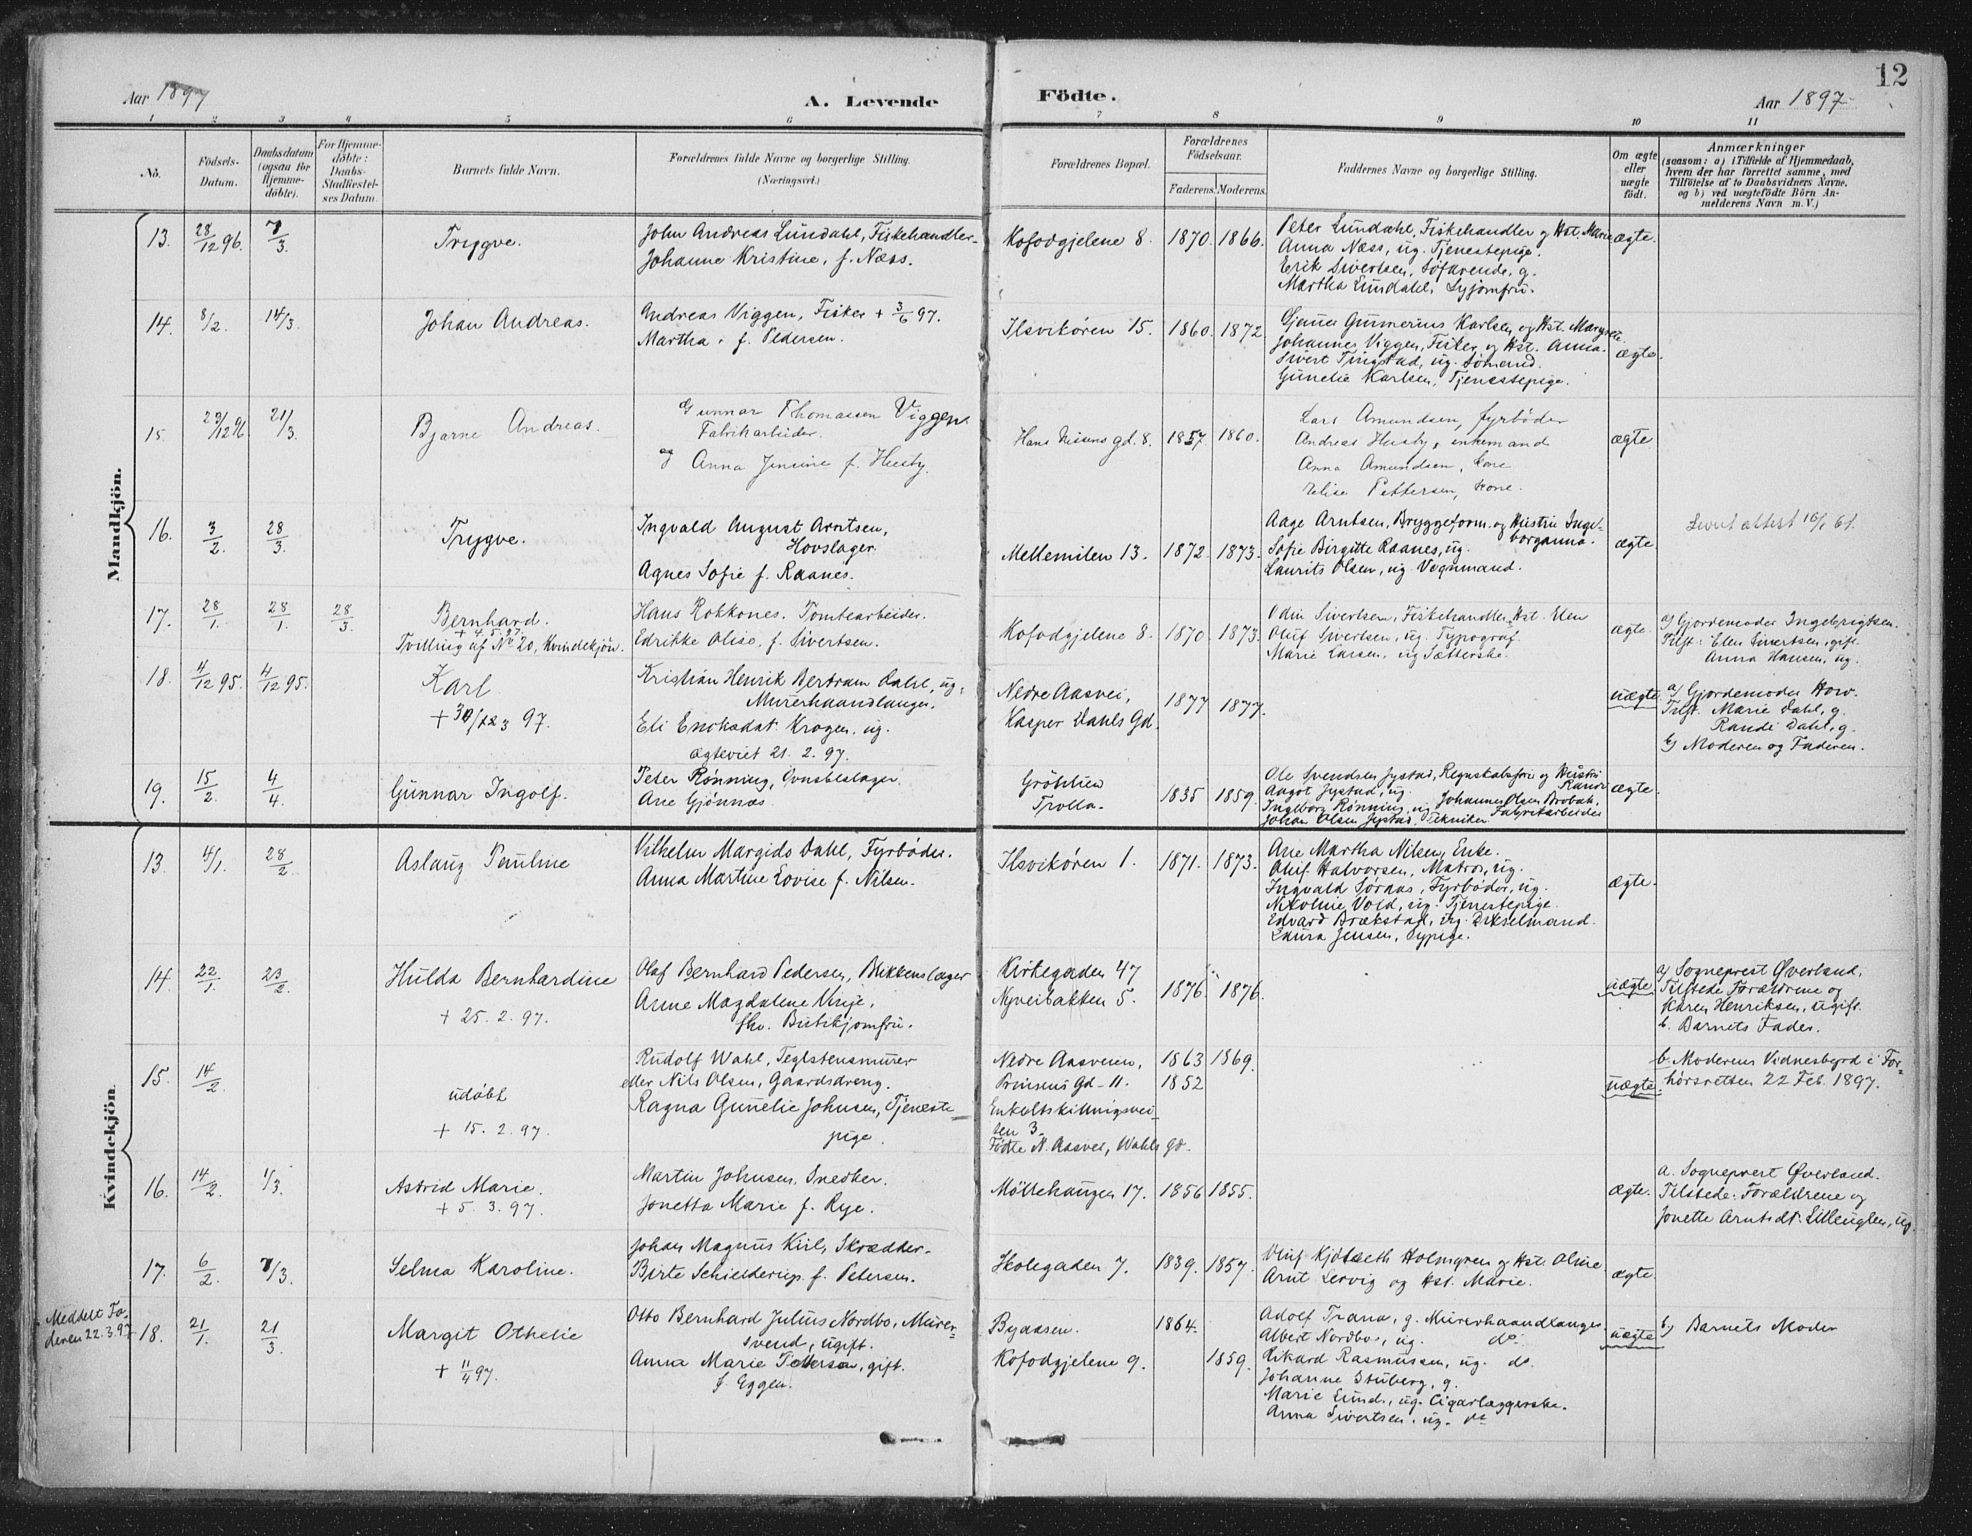 12
Aar 1897
A. Levende
Födte.
Aar 1897
1 2 3 4 5 6 7 8 9 10 11
No.
Födsels-Datum.
Daabsdatum (ogsaa for Hjemme-döbte).
For Hjemme-döbte: Daabs-Stadfæstel-ses Datum.
Barnets fulde Navn.
Forældrenes fulde Navne og borgerlige Stilling.
(Næringsvei.)
Forældrenes Bopæl.
Forældrenes Födselsaar.
Faderens. Moderens.
Faddernes Navne og borgerlige Stilling.
Om ægte eller uægte födt.
Anmærkninger
(saasom: a) i Tilfælde af Hjemmedaab, hvem der har forrettet samme, med Tilföielse af to Daabsvidners Navne, og b) ved uægtefödte Börn An-melderens Navn m. V.)
Mandkjön.
13. 28/12 96. 7/3 Trygve. John Andreas Lundahl, Fiskehandler.
Johanne Kristine, f. Næss.
Kofodgjelene 8. 1870. 1866.
Peter Lundahl, Fiskehandler og Hst. Marie
Anna Næss, ug. Tjenestepige.
Erik Sivertsen, Søfarende, g.
Martha Lundahl, Syjomfru.
ægte.
14. 8/2. 14/3. Johan Andreas. Andreas Viggen, Fisker + 3/6 97.
Martha, f. Pedersen.
Ilsvikøren 15. 1860. 1872.
Gunerius Karlsen og Hst. Margrete.
Johannes Viggen, Fisker og Hst. Anna.
Sivert Tingstad, ug. Sømand.
Gunelie Karlsen, Tjenestepige.
ægte.
15. 29/12 96 21/3. Bjarne Andreas. Gunnar Thomassen Viggen
Fabrikarbeider.
og Anna Jensine f. Husby.
Hans Nissens gd. 8. 1857. 1860.
Lars Amundsen, fyrbøder
Andreas Husby, enkemand
Anna Amundsen, kone
Elise Pettersen, kone.
ægte
16. 3/2. 28/3. Trygve. Ingvald August Arntsen,
Hovslager
Agnes Sofie f. Raanes.
Mellemilen 13. 1872. 1873.
Aage Arntsen, Bryggeform. og Hustru Inge-
borganna.
Sofie Birgitte Raanes, ug.
Laurits Olsen, ug Vognmand.
ægte.
17. 28/1. 28/1. 28/3 Bernhard.
+ 4. 5. 97.
Tvilling af No 20, Kvindekjön.
Hans Rokkones. Tomtearbeider.
Edrikke Olise, f. Sivertsen.
Kofodgjelene 8. 1870. 1873.
Odin Sivertsen, Fiskehandler Hst. Elen
Oluf Sivertsen, ug. Typograf
Marie Larsen, ug Sætterske.
ægte.
a) Gjordemoder Ingebrigtsen.
Tilst: Elen Sivertsen, gift.
Anna Hansen, ug.
18. 4/12 95. 4/12 95. Karl
Kristian Henrik Bertram Dahl, ug.
Murerhaandlanger.
Eli Enoksdat. Krogen. ug.
ægteviet 21. 2. 97.
Nedre Aasvei,
Kasper Dahls Gd. 1877 1877.
uægte
a) Gjordemoder How.
Tilst. Marie Dahl, g.
Randi Dahl, g.
b) Moderen og Faderen.
19. 15/2. 4/4. Gunnar Ingolf. Peter Rønning, Ovnsbeslager
Ane Gjønnæs.
Trolla. 1835 1859.
Ole Svendsen Jystad, Regnskabsfører og Hustru
Aagot Jystad, ug.
Ingeborg Rønning, ug Johannes Olsen Brobak,
Johan Olsen Jystad, Tekniker Fabrikarbeider
ægte.
Kvindekjön
13. 4/1. 28/2 Aslaug Pauline Vilhelm Margido Dahl, Fyrbøder.
Anna Martine Lovise f. Nilsen.
Ilsvikøren 1. 1871. 1873.
Ane Martha Nilsen, Enke.
Oluf Halvorsen, Matros, ug.
Ingvald Søraas, Fyrbøder, ug.
Nikoline Vold, ug. Tjenestepige.
Edvard Brækstad, ug. Dixelmand.
Laura Jensen, Sypige.
ægte.
14. 22/1. 23/2. Hulda Bernhardine
+ 25. 2. 97.
Olaf Bernhard Pedersen, Blikkenslager
Anne Magdalene Vinje,
fhv. Butikjomfru.
Kirkegaden 47
Nyveibakken 5. 1876. 1876.
uægte
a) Sogneprest Øverland.
Tilstede Forældrene og
Karen Henriksen, ugift.
b. Barnets Fader.
15. 14/2 udøbt
+ 15. 2. 97.
Rudolf Wahl, Teglstensmurer
eller Nils Olsen, Gaardsdreng.
Ragna Gunelie Johnsen, Tjeneste
pige.
Nedre Aasveien,
Prinsens Gd-11.
Enkeltskillingsvei-
en 3.
Födte N. Aasvei, Wahls Gd.
1863 1869.
1852
uægte
b. Moderens Vidnesbyrd i For-
hørsretten 22 Feb. 1897.
16. 14/2. 1/3. Astrid Marie.
+ 5. 3. 97.
Martin Johnsen, Snedker.
Jonetta Marie f. Rye.
Møllehaugen 17. 1856 1855.
ægte.
a. Sogneprest Øverland.
Tilstede: Forældrene og
Jonette Arntsdt. Lilleuglen, ug.
17. 6/2. 7/3. Selma Karoline. Johan Magnus Kiil, Skrædder.
Birte Schielderup f. Petersen.
Skolegaden 7. 1839. 1857.
Oluf Holmgren og Hst. Oline
Arnt Lervig og Hst. Marie.
ægte.
Meddelt Fa-
deren 22.3.97
18. 21/1. 21/3 Margit Othelie
+ 11/4 97.
Otto Bernhard Julius Nordbo, Murer-
svend, ugift.
Anna Marie Petterson, gift.
f. Eggen.
Byaasen. 1864.
Kofodgjelene 9. 1859.
Adolf Trana, g. Murerhaandlanger
Albert Nordbo, ug. do.
Rikard Rasmussen, ug. do.
Johanne Stuberg, g.
Marie Lund, ug. Cigarlæggerske.
Anna Sivertsen, ug. do
uægte
b) Barnets Moder